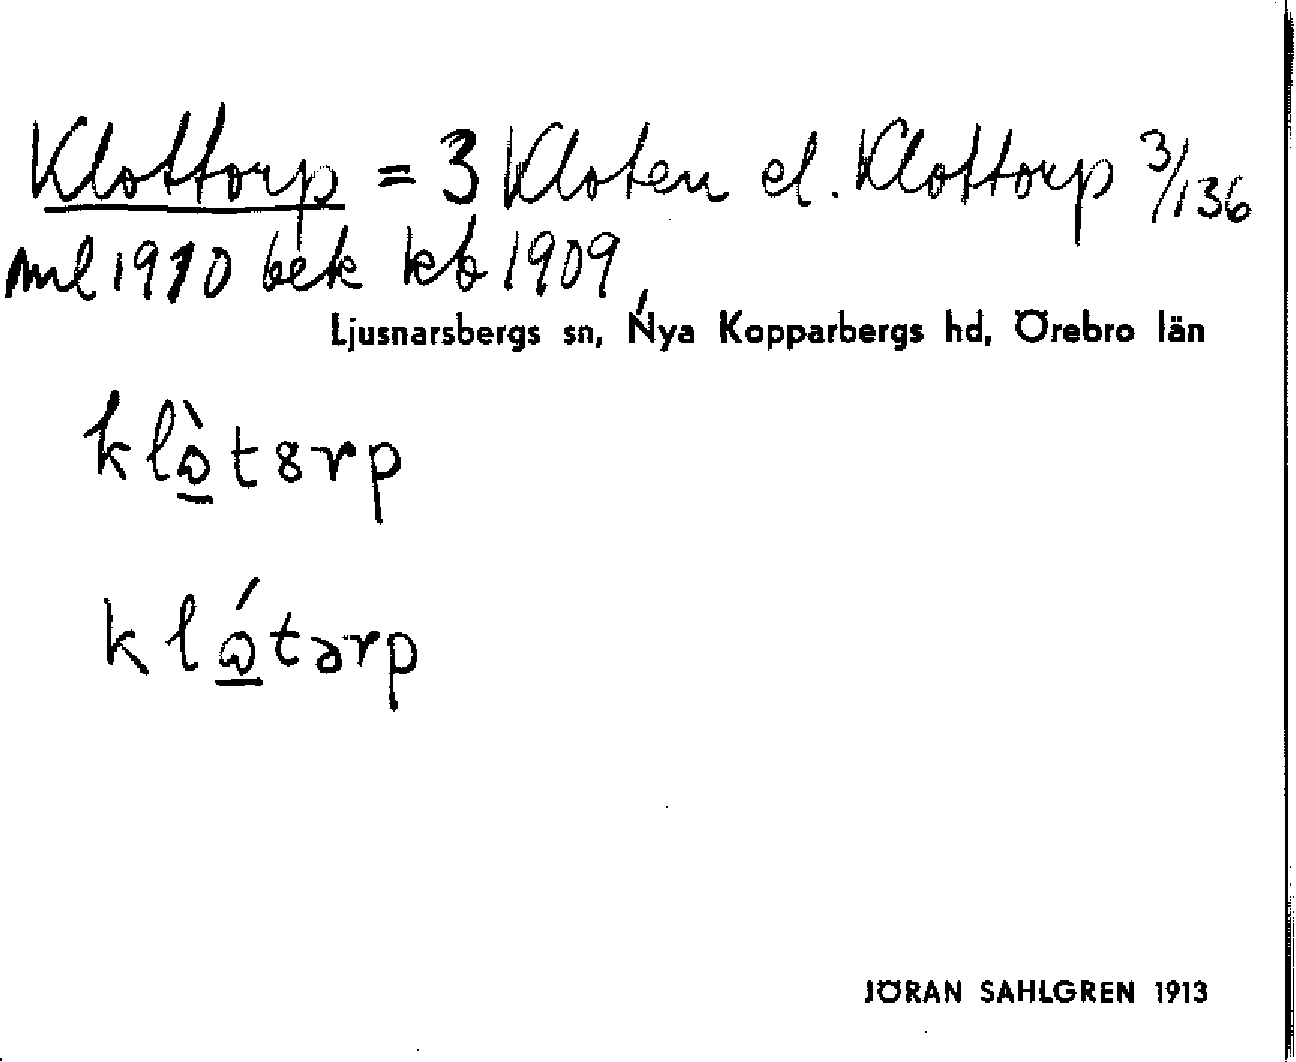 Klottorp = 3 Kloten el. Klottorp 3/136
ml 1910 bek kb 1909
Ljusnarsbergs sn, Nya Kopparbergs hd, Örebro län
klò̱t8rp
kló̱tərp
JÖRAN SAHLGREN 1913